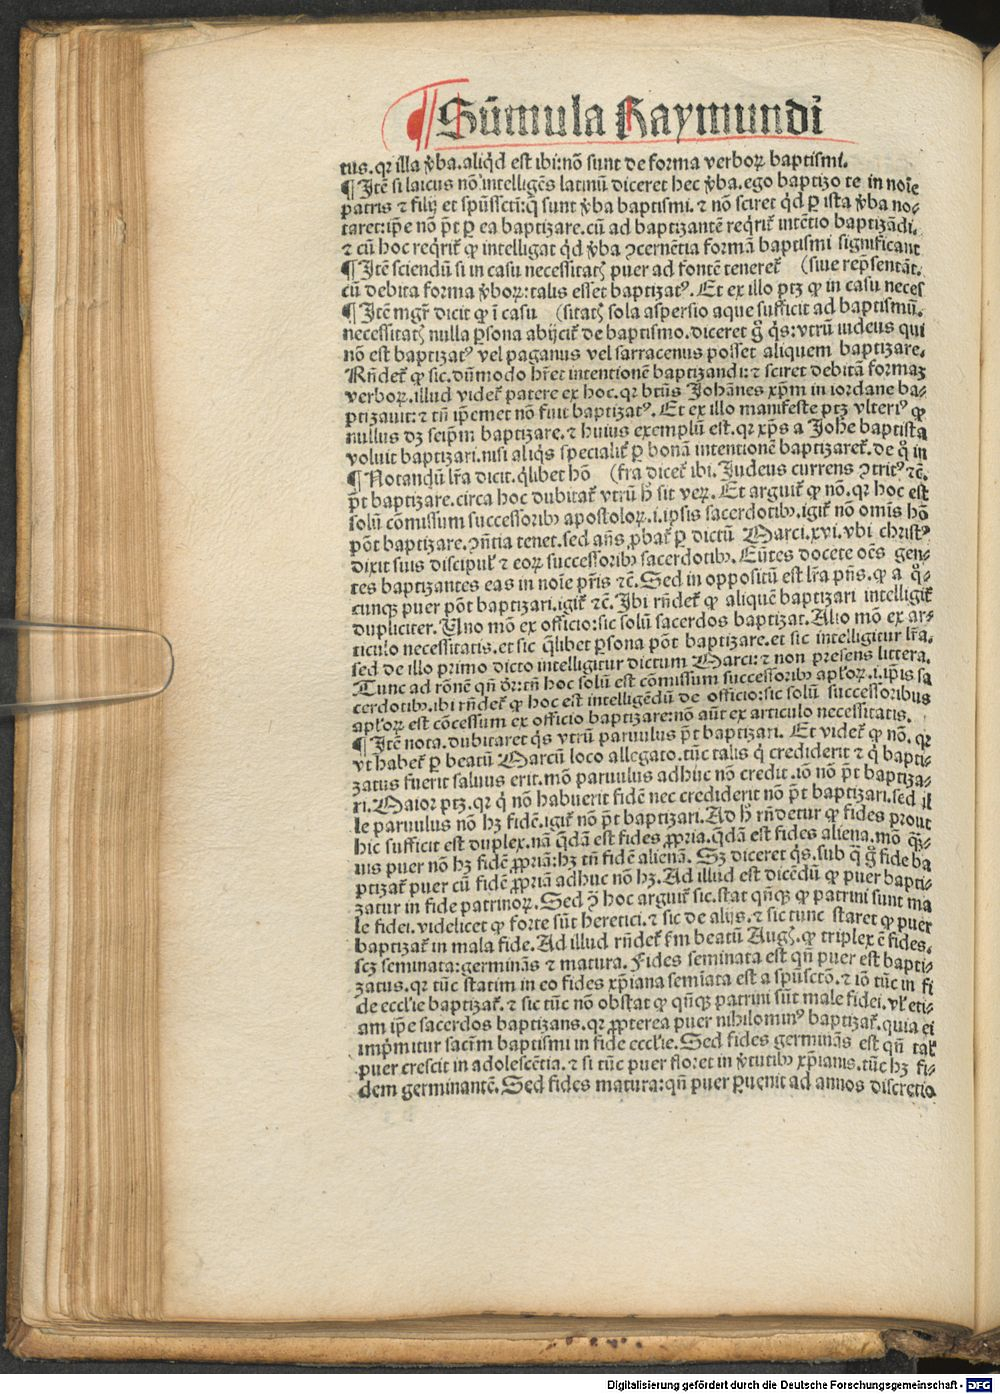 ¶ Sūmula Raymundi
tus. qꝛ illa v̄ba. aliqd̄ est ibi: nō sunt de forma verboꝝ baptismi.
¶ Itē si laicus nō intelligēs latinū diceret hec v̄ba. ego baptizo te in noīe
patris ⁊ filij et spūssctī: q̄ sunt v̄ba baptismi. ⁊ nō sciret qd̄ ꝑ ista v̄ba no⸗
taret: ip̄e nō p̄t ꝑ ea baptizare. cū ad baptizantē reqrit̄ intētio baptizādi.
⁊ cū hoc reqrit̄ ꝙ intelligat qd̄ v̄ba ꝯcernētia formā baptismi significant
¶ Itē sciendū si in casu necessitatꝭ puer ad fontē teneret̄ (siue rep̄sentāt.
cū debita forma v̄boꝝ: talis esset baptizatꝰ. Et ex illo ptꝫ ꝙ in casu neces
¶ Itē mgr̄ dicit ꝙ ī casu (sitatꝭ sola aspersio aque sufficit ad baptismū.
necessitatꝭ nulla ꝑsona abijcit̄ de baptismo. diceret gͦ qs̄: vtrū iudeus qui
nō est baptizatꝰ vel paganus vel sarracenus posset aliquem baptizare.
Rn̄det̄ ꝙ sic. dūmodo hr̄et intentionē baptizandi: ⁊ sciret debitā formaꝫ
verboꝝ. illud videt̄ patere ex hoc. qꝛ btūs Johānes xp̄m in iordane ba⸗
ptizauit: ⁊ tn̄ ip̄emet nō fuit baptizatꝰ. Et ex illo manifeste ptꝫ vlteriꝰ ꝙ
nullus dꝫ seip̄m baptizare. ⁊ huius exemplū est. qꝛ xp̄s a Johe baptista
voluit baptizari. nisi aliqs̄ specialit̄ ꝑ bonā intentionē baptizaret̄. de qͦ in
¶ Notandū lr̄a dicit. qlibet hō (fra dicet̄ ibi. Judeus currens ꝯtritꝰ ⁊c̄.
p̄t baptizare. circa hoc dubitat̄ vtrū h̄ sit veꝝ. Et arguit̄ ꝙ nō. qꝛ hoc est
solū cōmissum successoribꝫ apostoloꝝ. i. ipsis sacerdotibꝫ. igit̄ nō omīs hō
pōt baptizare. ꝯn̄tia tenet. sed an̄s ꝓbat̄ ꝑ dictū Marci. xvi. vbi christꝰ
dixit suis discipul̄ ⁊ eoꝝ successoribꝫ sacerdotibꝫ. Eūtes docete oēs gen⸗
tes baptizantes eas in noīe pr̄is ⁊c̄. Sed in oppositū est lr̄a pn̄s. ꝙ a qͦ⸗
cunqꝫ puer pōt baptizari. igit̄ ⁊c̄. Ibi rn̄det̄ ꝙ aliquē baptizari intelligit̄
dupliciter. Uno mō ex officio: sic solū sacerdos baptizat. Alio mō ex ar⸗
ticulo necessitatis. et sic qlibet ꝑsona pōt baptizare. et sic intelligitur lr̄a.
sed de illo primo dicto intelligitur dictum Marci: ⁊ non presens littera.
Tunc ad rōnē qn̄ dr̄: tn̄ hoc solū est cōmissum successoribꝫ apl̄oꝝ. i. ip̄is sa
cerdotibꝫ. ibi rn̄det̄ ꝙ hoc est intelligēdū de officio: sic solū successoribus
apl̄oꝝ est cōcessum ex officio baptizare: nō aūt ex articulo necessitatis.
¶ Itē nota. dubitaret qs̄ vtrū paruulus p̄t baptizari. Et videt̄ ꝙ nō. qꝛ
vt habet̄ ꝑ beatū Marcū loco allegato. tūc talis q̇ crediderit ⁊ q̇ bapti⸗
zatus fuerit saluus erit. mō paruulus adhuc nō credit. iō nō p̄t baptiza⸗
ri. Maior ptꝫ. qꝛ q̇ nō habuerit fidē nec crediderit nō p̄t baptizari. sed il
le paruulus nō hꝫ fidē. igit̄ nō p̄t baptizari. Ad h̄ rn̄detur ꝙ fides prout
hic sufficit est duplex. nā qdā est fides ꝓpria. qdā est fides aliena. mō qͣꝫ⸗
uis puer nō hꝫ fidē ꝓpriā: hꝫ tn̄ fidē alienā. Sꝫ diceret qs̄. sub q̄ gͦ fide ba
ptizat̄ puer cū fidē ꝓpriā adhuc nō hꝫ. Ad illud est dicēdū ꝙ puer bapti⸗
zatur in fide patrinoꝝ. Sed ꝯ̄ hoc arguit̄ sic. stat qn̄qꝫ ꝙ patrini sunt ma
le fidei. videlicet ꝙ forte sūt heretici. ⁊ sic de alijs. ⁊ sic tunc staret ꝙ puer
baptizat̄ in mala fide. Ad illud rn̄det̄ fm̄ beatū Augꝭ. ꝙ triplex ē fides.
scꝫ seminata: germinās ⁊ matura. Fides seminata est qn̄ puer est bapti⸗
zatus. qꝛ tūc statim in eo fides xp̄iana semīata est a spūsctō. ⁊ iō tūc in fi
de eccl̄ie baptizat̄. ⁊ sic tūc nō obstat ꝙ qn̄qꝫ patrini sūt male fidei. vl̄ eti⸗
am ip̄e sacerdos baptizans. qꝛ ꝓpterea puer nihilominꝰ baptizat̄. quia ei
imp̄mitur sacr̄m baptismi in fide eccl̄ie. Sed fides germinās est qn̄ tal̄
puer crescit in adolescētia. ⁊ si tūc puer floret in v̄tutibꝫ xp̄ianis. tūc hꝫ fi⸗
dem germinantē. Sed fides matura: qn̄ puer ꝑuenit ad annos discretio
Digitalisierung gefördert durch die Deutsche Forschungsgemeinschaft - DFG